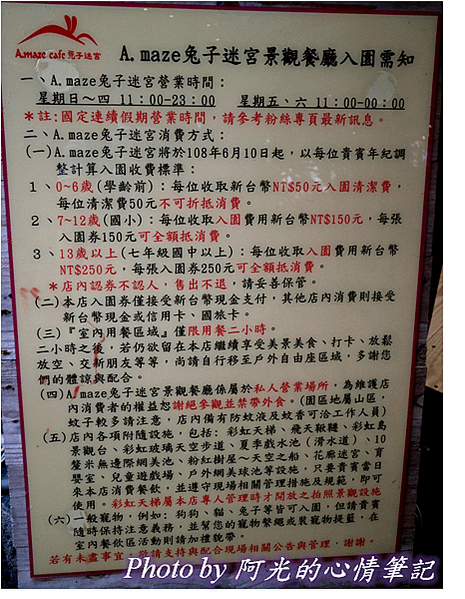 A.maze cafe 兔子迷宮
A.maze兔子迷宮景觀餐廳入園需知
一、A.maze兔子迷宮營業時間：
星期日～四 11：00-23：00 星期五、六 11：00-00：00
＊註:國定連續假期營業時間，請參考粉絲專頁最新訊息。
二、A.maze兔子迷宮消費方式：
(一)A.maze兔子迷宮將於108年6月10日起，以每位貴賓年紀調
整計算入園收費標準：
1、0~6歲(學齡前)：每位收取新台幣NT$50元入園清潔費，
每位清潔費50元不可折抵消費。
2、7~12歲(國小)：每位收取入園費用新台幣NT$150元，每張
入園券150元可全額抵消費。
3、13歲以上(七年級國中以上)：每位收取入園費用新台幣
NT$250元，每張入園券250元可全額抵消費。
＊店內認券不認人，售出不退，請妥善保管。
(二)本店入園券僅接受新台幣現金支付，其他店內消費則接受
新台幣現金或信用卡、國旅卡。
(三)『室內用餐區域』僅限用餐二小時。
二小時之後，若仍欲留在本店繼續享受美景美食、打卡、放鬆
放空、交新朋友等等，尚請自行移至戶外自由座區域，多謝您
們的體諒與配合。
(四)A.maze兔子迷宮景觀餐廳係屬於私人營業場所，為維護店
內消費者的權益恕謝絕參觀並禁帶外食。(園區地屬山區，
蚊子較多請注意，店內備有防蚊液及蚊香可洽工作人員)
(五)店內各項附隨設施，包括：彩虹天梯、飛天鞦韆、彩虹島
景觀台、彩虹玻璃天空步道、夏季戲水池（滑水道）、10
釐米無邊際網美池、粉紅樹屋～天空之船、花廊迷宮、育
嬰室、兒童遊戲場、戶外網美球池等設施，只要貴賓當日
來本店消費餐飲，並遵守現場相關管理措施及規範，即可
使用。彩虹天梯屬本店專人管理時才開放之拍照景觀設施
(六)一般寵物，例如：狗狗、貓、兔子等皆可入園，但請貴賓
隨時保持注意義務，並幫您的寵物繫繩或裝寵物提籃，在
室內餐飲區活動則請加禮貌帶。
若有未盡事宜，敬請支持與配合現場相關公告與管理，謝謝。
Photo by 阿光的心情筆記